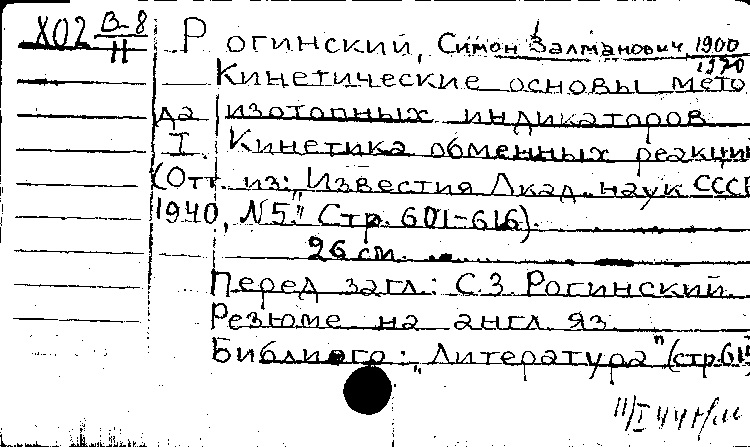 Х02 В-8/Н
Рогинский, Симон Залманович, 1900
1970
Кинетические основы мето
да изотопных индикаторов
I. Кинетика обменных реакци
(Отт. из: "Известия Акад. наук СССР
1940, №5." Стр. 601-616).
26 см.
Перед загл.: С.З. Рогинский
Резюме на англ. яз
Библиогр: "Литература" (стр. 615